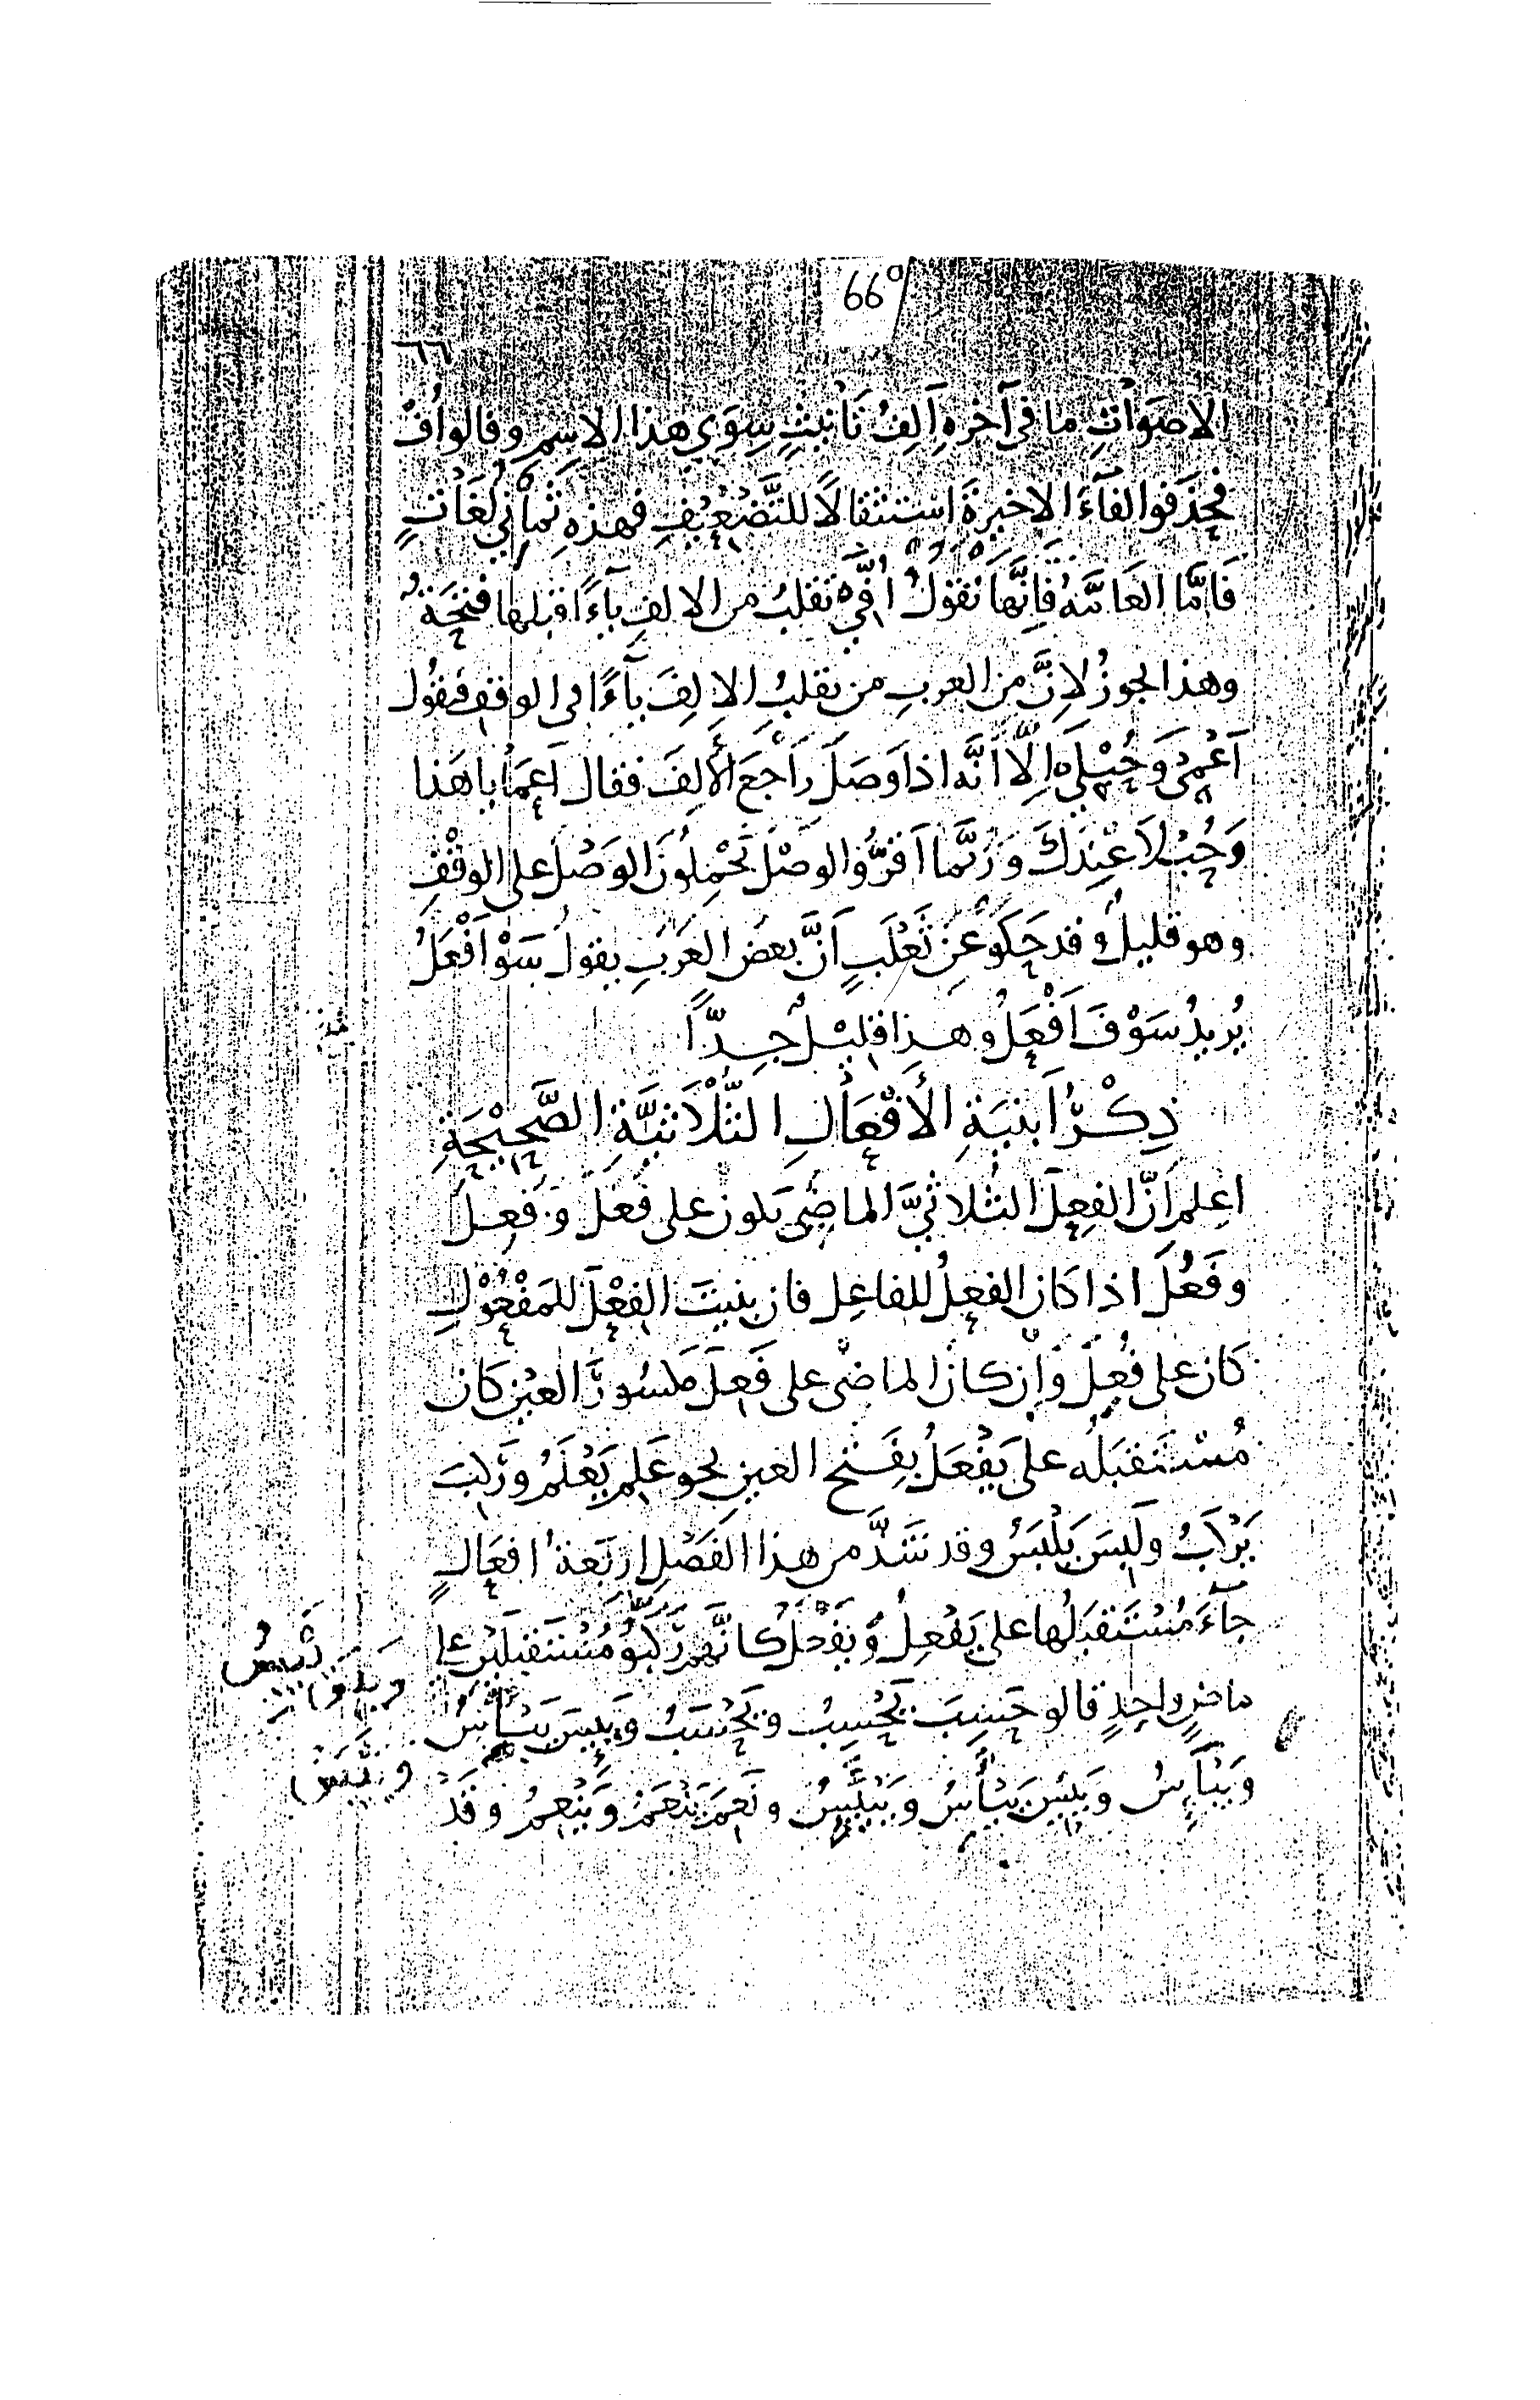 66a
٦٦
الاصَوْاتِ ما في آخره اَلِفُ تَأنيثٍ سِوَي هذا الاسمِ وقالو اُفْ
فحذَفوا الفآءَ الاخيرةَ استثقالاً للتَّضْعِيْفِ فهذهِ ثمانِي لُغَاتٍ
فَامَّا العَامَّةُ فَاِنَّها تقوْلُ اُفَّيْ تقلبُ من الالفِ يآءً قبلها فتحَةٌ
وهذا يجوزُ لاِنَّ مِن العربِ من يقلبُ الالِفَ يآءً في الوقفِ فيقُول
اَعْمَيْ وَحُبْلَيْ اِلّا انَّه اذا وَصَلَ رَاْجَعَ الأَلِفَ فقال اَعمَا يا هَذا
وَحُبْلاَ عِنْدَكَ ورُبَّما اَقرُّوا الوصْلَ يَحْمِلُونَ الوَصْلَ علي الوقْفِ
وهو قليلٌ وقد حَكَو عَنْ ثَعْلَبٍ اَنَّ بعضَ العَرَبِ يقولُ سَوْ اَفْعَلُ
يُريدُ سَوْفَ اَفْعَلُ وهذا قليْلٌ جِدًّا
ذِكْرُ اَبنيَةِ الأَفْعَالِ الثُّلَاثيَّةِ الصَّحِيْحَةِ
اعلم اَنّ الفِعلَ الثُلاثيَّ الماضِي يكون علي فَعَلَ وَفَعِلَ
وفَعُلَ اذا كان الفعلُ للفاعِل فان بنيتَ الفِعْلَ للمَفْعُوْلِ
كان علي فُعِلَ وَاِن كان الماضي علي فَعِلَ مكسُورَ العيْنِ كان
مُسْتقبَلُه علي يَفْعَلُ بِفَتحِ العينِ نحو عَلِمَ يَعْلَمُ ورَكِبَ
يَرْكَبُ ولَبِسَ يَلْبَسُ وقد شَذَّ من هذا الفَصْلِ اربَعةُ افعَالٍ
جآءَ مُسْتَقبَلُها علي يَفْعِلُ وَيَفْعَلُ كانَّهم رَكَّبُو مُسْتَقبَلَيْنِ علي
ماضٍ واحِدٍ قالو حَسِبَ يَحْسِبُ ويَحْسَبُ ويَبِسَ يَيْبَسُ
وَيَيْأَسُ ويَئِسَ يَيْأَسُ وَيَيْئِسُ ونَعِمَ يَنْعَمُ وَيَنْعِمُ وقَدْ